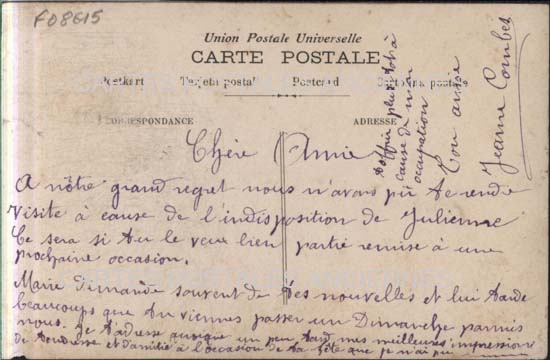 F08615
Union Postale Universelle
CARTE POSTALE
Postkart Tarjeta postal Postcard Cartolina postale
CORRESPONDANCE
ADRESSE
Chère Amie
A nôtre grand regret nous n'avons pû te rendre
visite à cause de l'indisposition de Julienne
Ce sera si tu le veux bien partie remise à une
prochaine occasion.
Marie demande souvent de tes nouvelles et lui tarde
beaucoups que tu viennes passer un Dimanche parmis
nous. Je t'adresse quoique un peu tard mes meilleures impressions
de tendresse et d'amitié à l'occasion de ta fête que je n'ai pu
t'offrir plus tôt à
cause de mon
occupation
Ton amie
Jeanne Combes